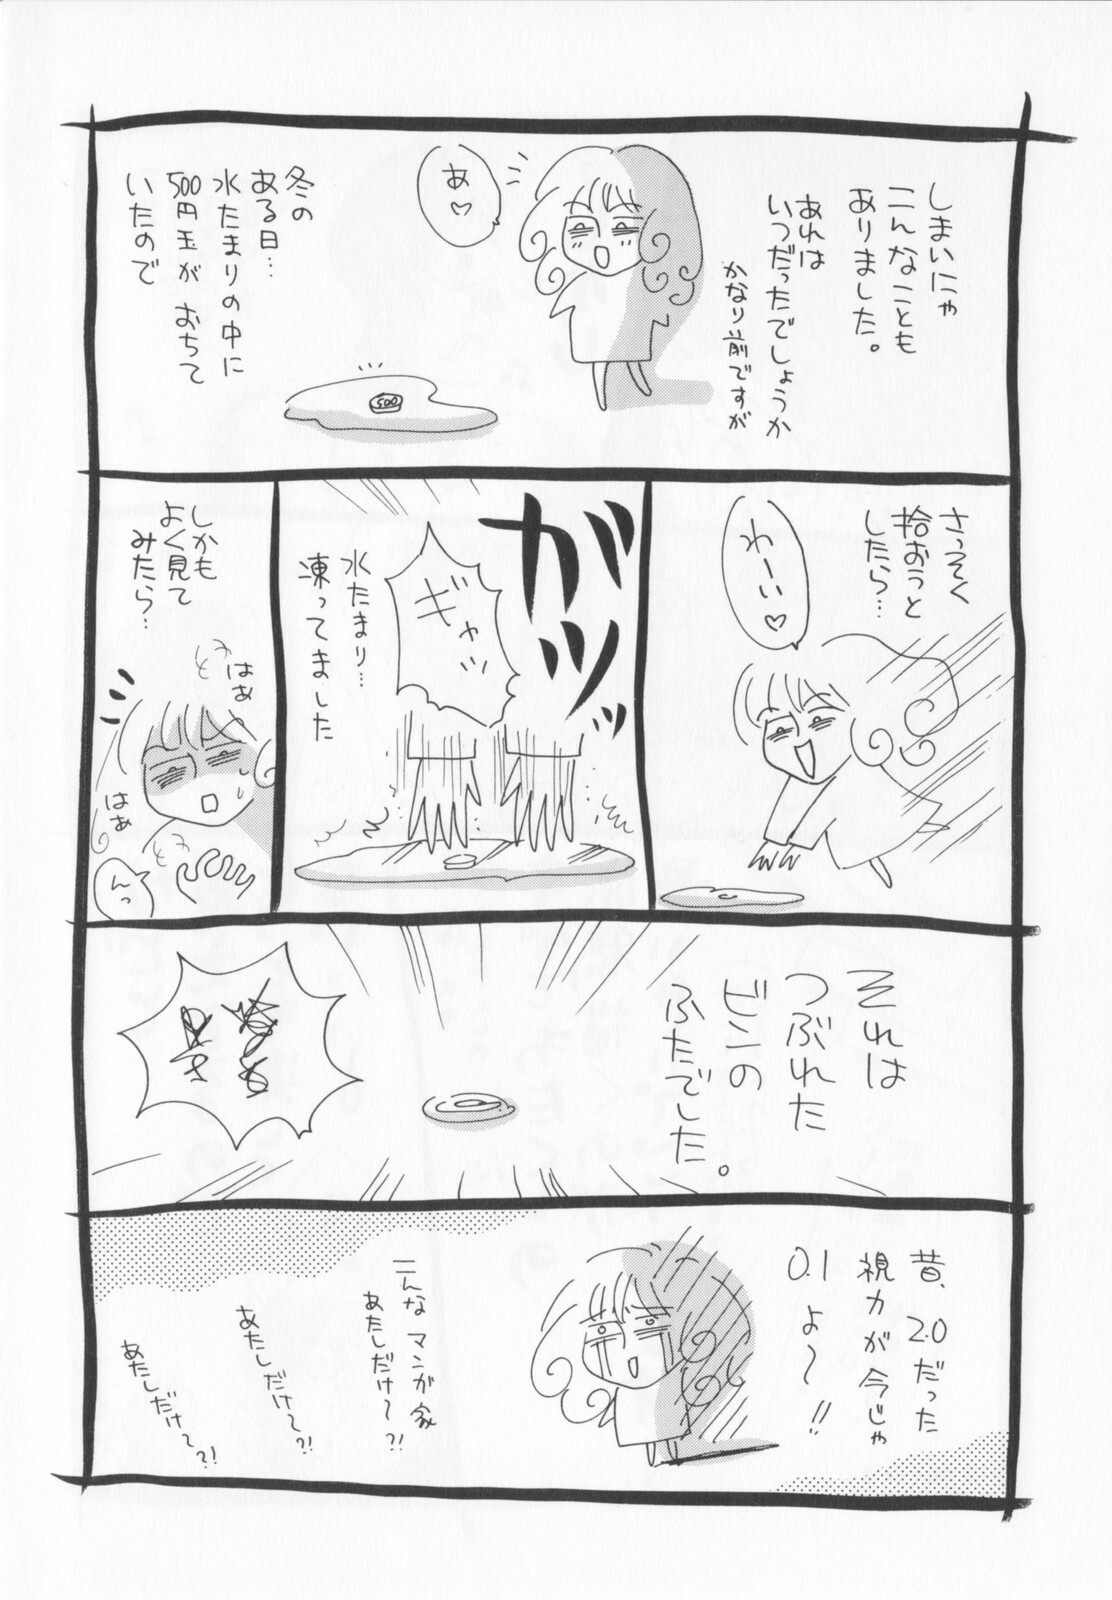 しまいにゃ
こんなことも
ありました。
あれは
いつだったでしょうか
かなり前ですが
あ♡
冬の
ある日…
水たまりの中に
500円玉がおちて
いたので
500
さっそく
拾おうと
したら…
わーい♡
ガツッ
ギャッ
水たまり…
凍ってました
しかも
よく見て
みたら…
はぁ
はぁ
んっ
それは
つぶれた
ビンの
ふたでした。
昔、2.0だった
視力が今じゃ
0.1よ〜!!
こんなマンガ家
あたしだけ〜?!
あたしだけ〜?!
あたしだけ〜?!